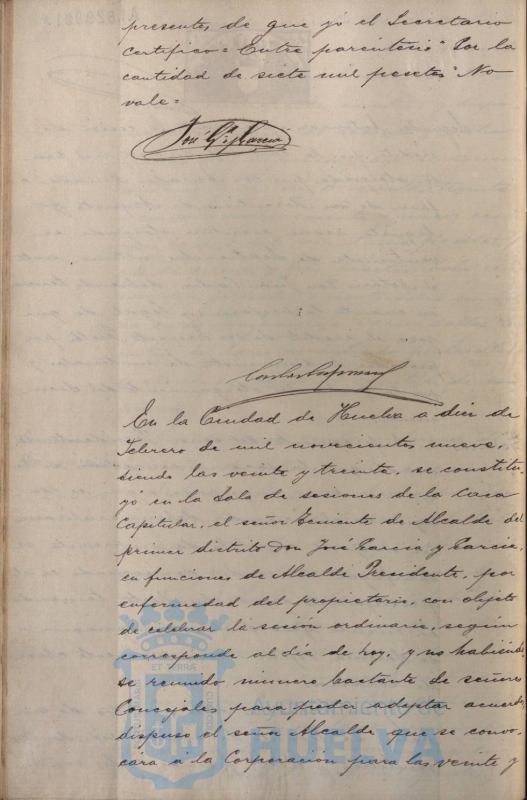 presentes de que yó el Secretario
certifico = Entre parentesis "Por la
cantidad de siete mil pesetas" No
vale =
José Gª y Garcia
En la Ciudad de Huelva a diez de
Febrero de mil novecientos nueve,
siendo las veinte y treinta, se constitu-
yó en la Sala de sesiones de la Casa
Capitular, el señor Teniente de Alcalde del
primer distrito Don José Garcia y Garcia,
en funciones de Alcalde Presidente, por
enfermedad del propietario, con objeto
de celebrar la sesión ordinaria, según
corresponde al día de hoy, y no habiendo
se reunido número bastante de señores
Concejales para poder adoptar acuerdo,
dispuso el señor Alcalde que se convo-
cara á la Corporación para las veinte y
ET TERRA
Ayuntamiento de
HUELVA